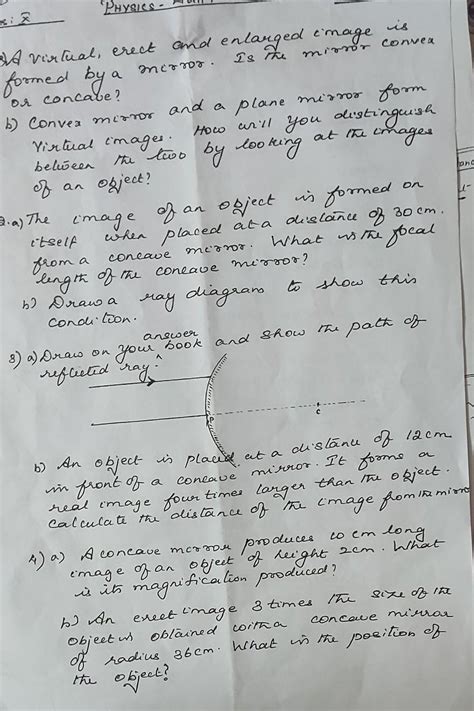 PHYSICS -
: X
a) A virtual, erect and enlarged image is
formed by a mirror. Is the mirror convex
or concave?
b) Convex mirror and a plane mirror form
virtual images. How will you distinguish
between the two by looking at the images
of an object?
2. a) The image of an object is formed on
itself when placed at a distance of 30 cm.
from a concave mirror. What is the focal
length of the concave mirror?
b) Draw a ray diagram to show this
condition.
3) a) Draw on your answer book and show the path of
reflected ray.
P
C
b) An object is placed at a distance of 12 cm
in front of a concave mirror. It forms a
real image four times larger than the object.
Calculate the distance of the image from the mirro
4) a) A concave mirror produces 10 cm long
image of an object of height 2cm. What
is its magnification produced?
b) An erect image 3 times the size of the
object is obtained with a concave mirror
of radius 36 cm. What is the position of
the object?